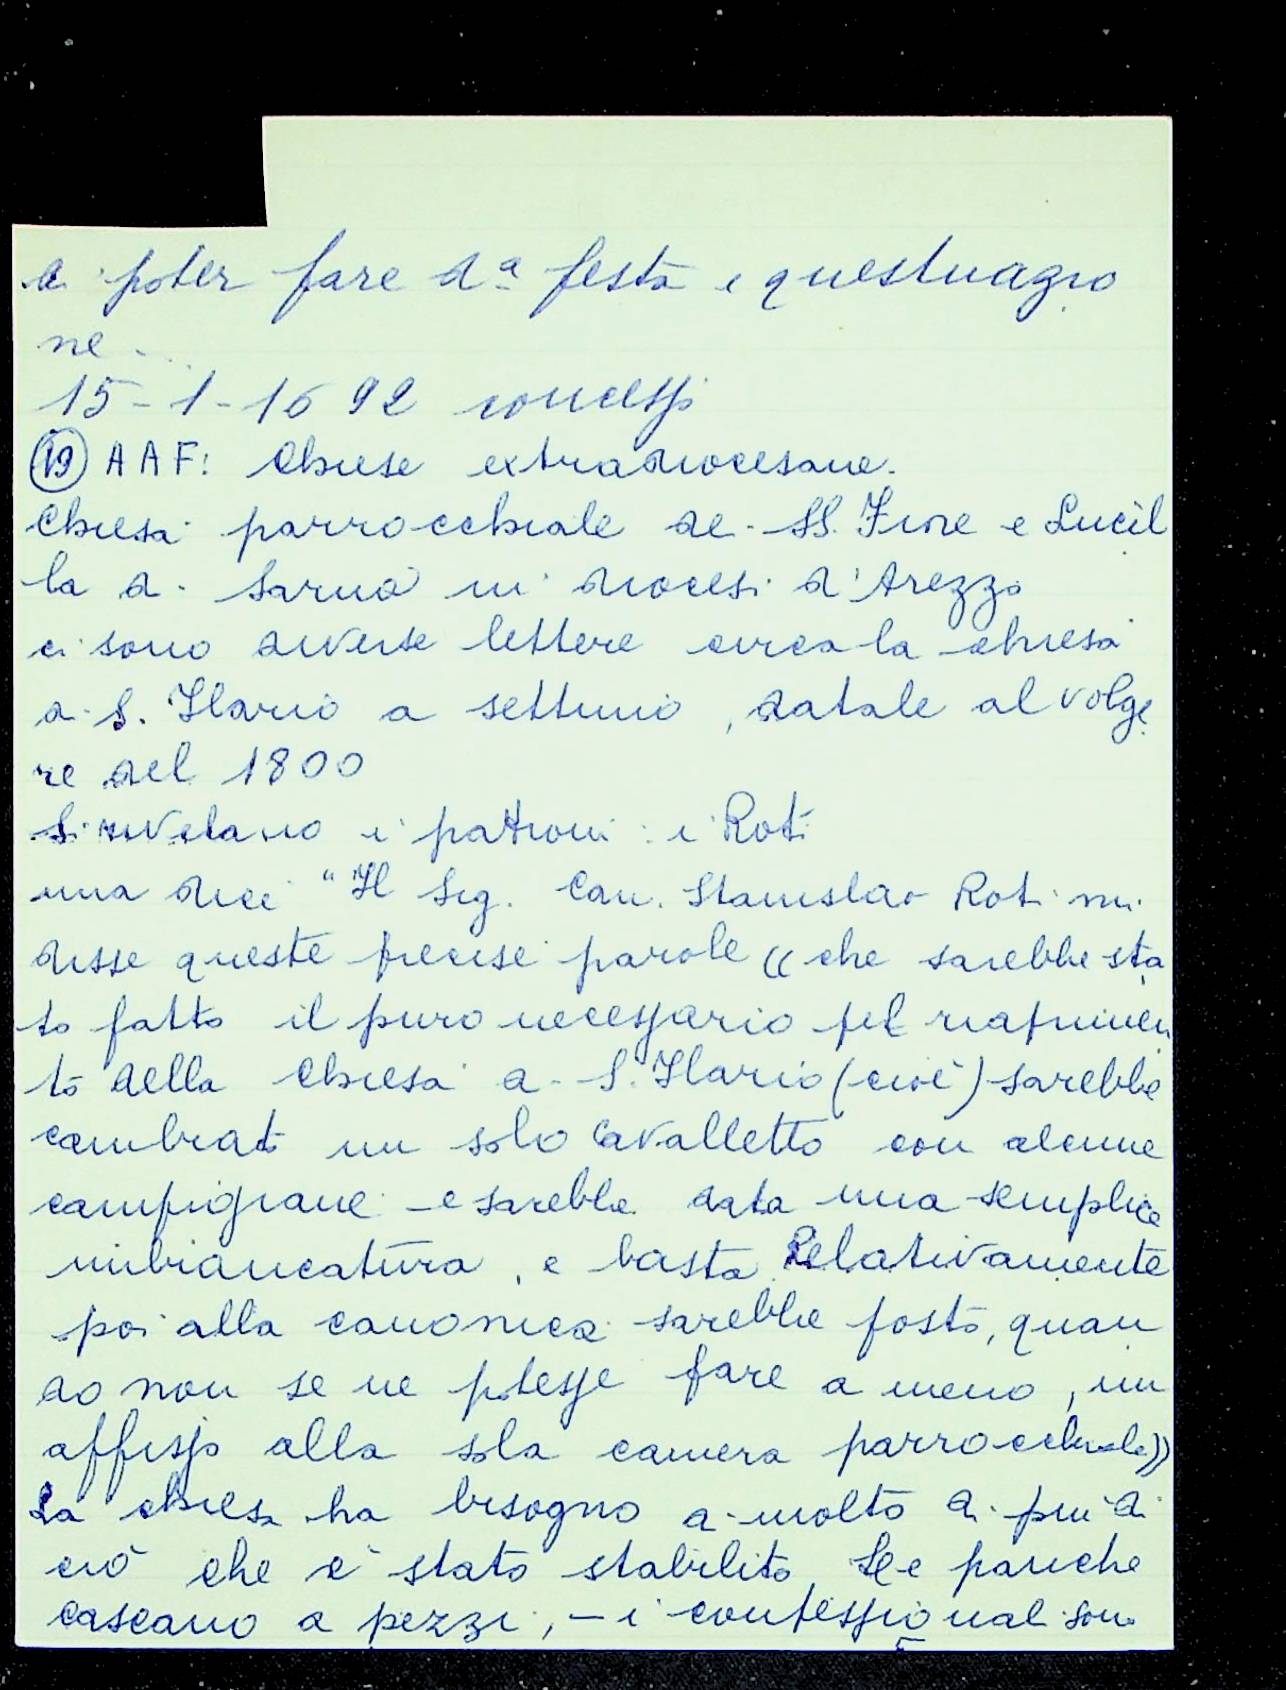 di poter fare dª festa e questuagio
ne -
15-1-1692 concessi
(19) AAF: Chiese extradiocesane.
Chiesa parrocchiale dei SS. Fiore e Lucil
la di Sarna in diocesi d'Arezzo
ci sono diverse lettere circa la chiesa
di S. Ilario a settimo, datate al volge
re del 1800
Si rivelano i patroni: i Roti
una dice "Il Sig. Can. Stanislao Roti mi
disse queste precise parole ((che sarebbe sta
to fatto il puro necessario pel riaprimen
to della Chiesa di S. Ilario (cioè) sarebbe
cambiato un solo cavalletto con alcune
campigiane e sarebbe data una semplice
imbiancatura, e basta. Relativamente
poi alla canonica sarebbe posto, quan
do non se ne potesse fare a meno, un
affisso alla sola camera parrocchiale))
La chiesa ha bisogno di molto di più di
ciò che è stato stabilito. Le panche
cascano a pezzi, - i confessionali son